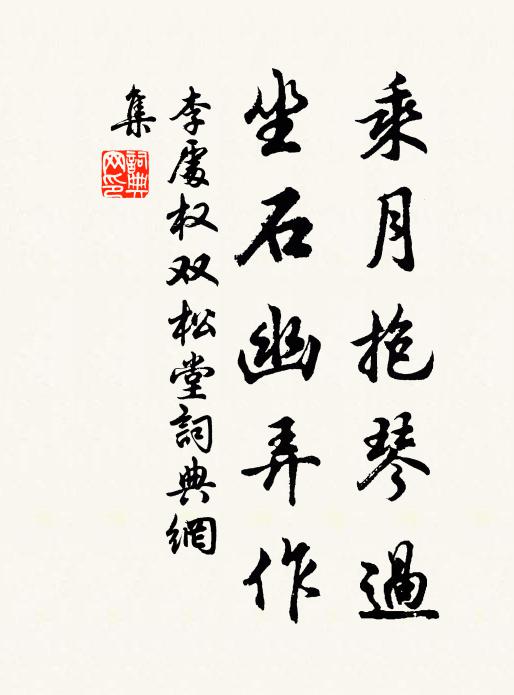 乘月抱琴過
坐石幽弄作
李處权双松堂詞典網
集
詞典網印